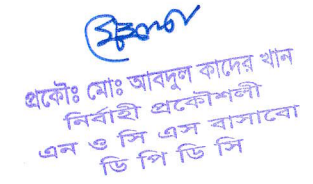 প্রকৌঃ মোঃ আবদুল কাদের খান
নির্বাহী প্রকৌশলী
এন ও সি এস বাসাবো
ডি পি ডি সি